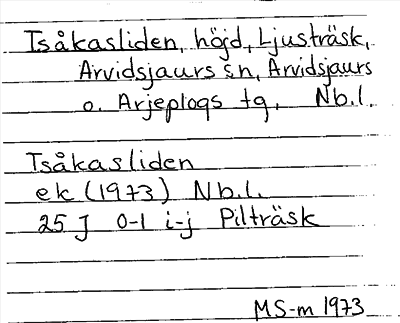 Tsåkasliden, höjd, Ljusträsk,
Arvidsjaurs sn, Arvidsjaurs
o. Arjeplogs tg, Nb.l.
Tsåkasliden
ek (1973) Nb.l.
25 J 0-1 i-j Pilträsk
MS-m 1973